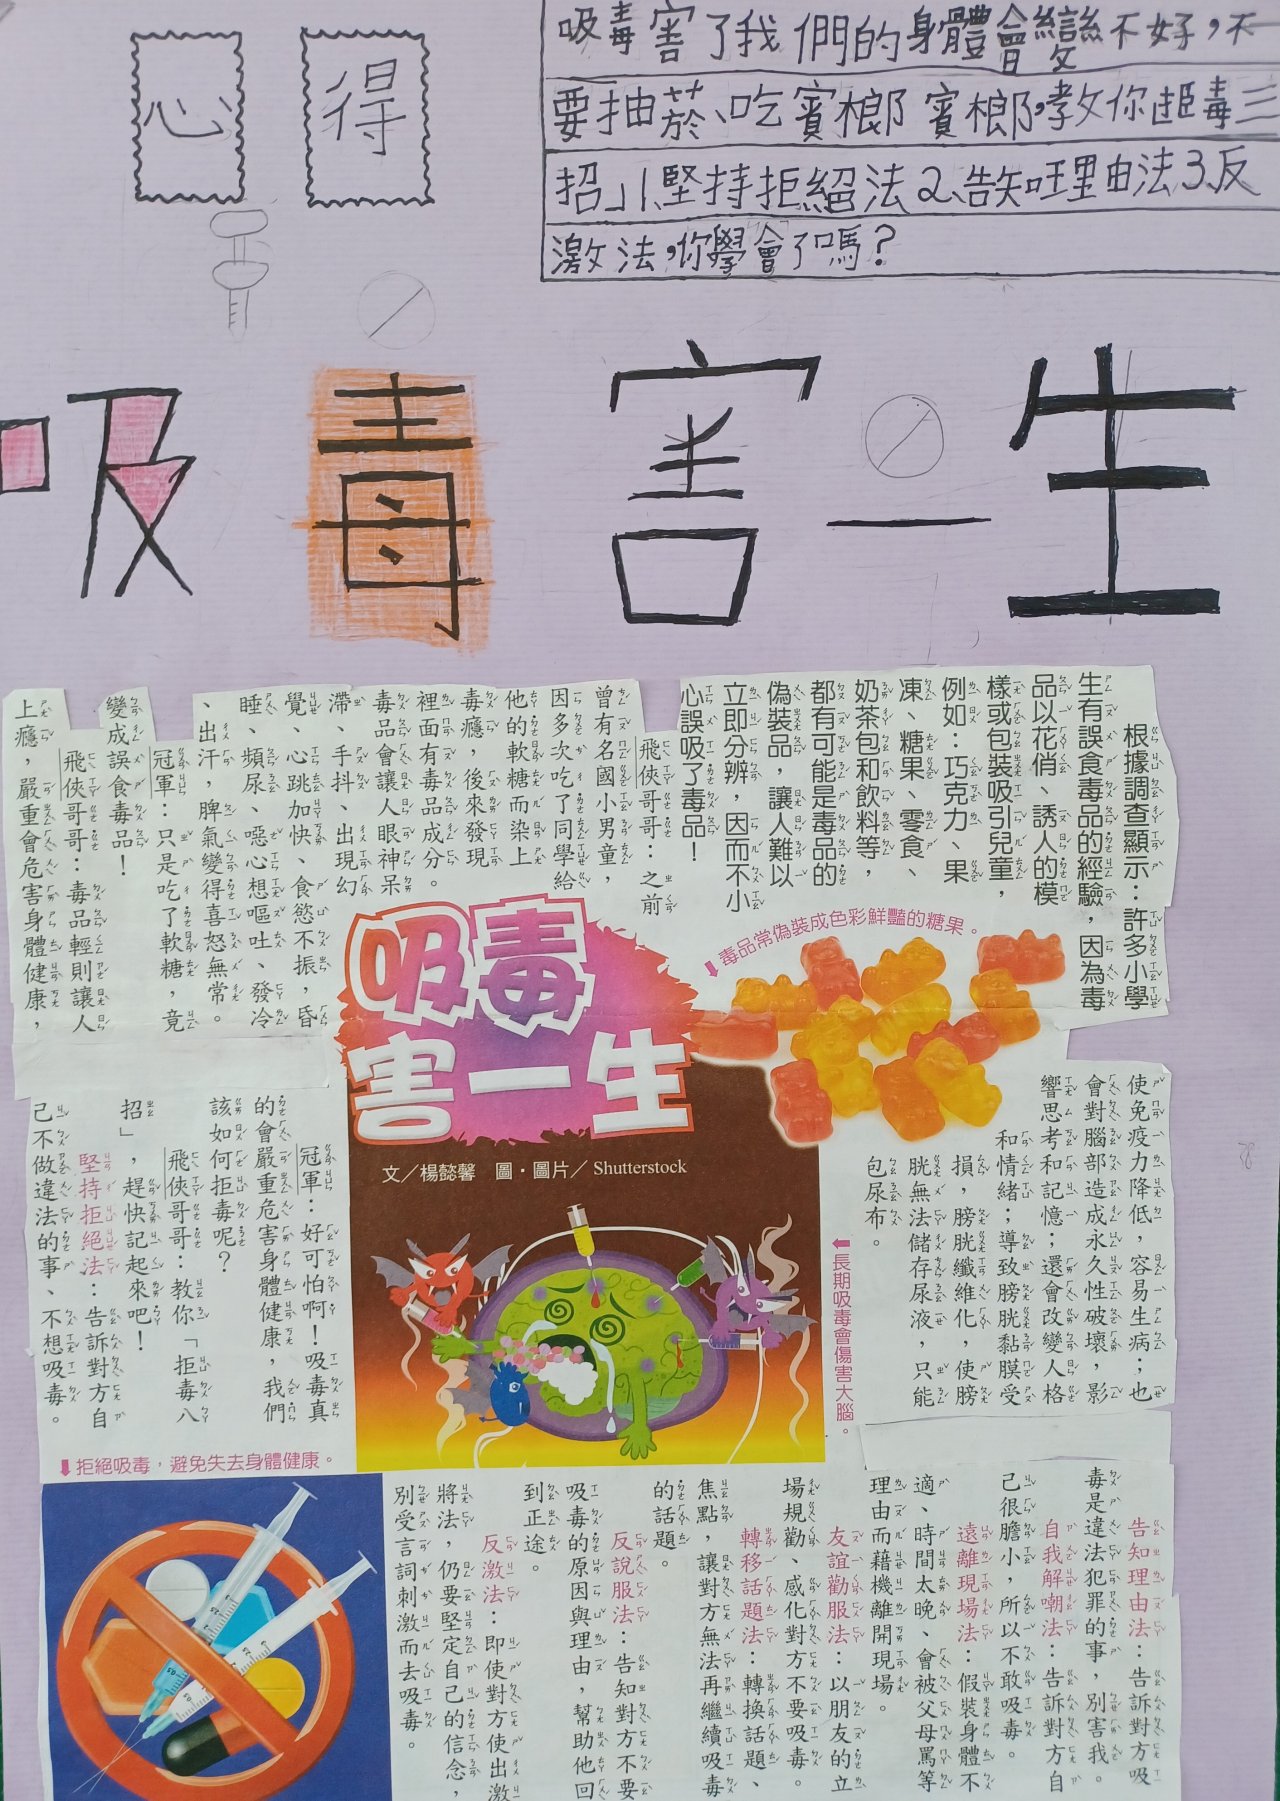 心得
吸毒害了我們的身體會變不好，不
要抽菸、吃賓榔賓榔，教你拒毒三
招」1.堅持拒絕法2、告知理由法3.反
激法，你學會了嗎？
吸毒害一生
根據調查顯示：許多小學
生有誤食毒品的經驗，因為毒
品以花俏、誘人的模
樣或包裝吸引兒童，
例如：巧克力、果
凍、糖果、零食、
奶茶包和飲料等，
都有可能是毒品的
偽裝品，讓人難以
立即分辨，因而不小
心誤吸了毒品！
飛俠哥哥：之前
曾有名國小男童，
因多次吃了同學給
他的軟糖而染上
毒癮，後來發現
裡面有毒品成分。
毒品會讓人眼神呆
滯、手抖、出現幻
覺、心跳加快、食慾不振，昏
睡、頻尿、噁心想嘔吐、發冷
、出汗，脾氣變得喜怒無常。
冠軍：只是吃了軟糖，竟
變成誤食毒品！
飛俠哥哥：毒品輕則讓人
上癮，嚴重會危害身體健康，
毒品常偽裝成色彩鮮豔的糖果。
吸毒
害一生
文／楊懿馨 圖・圖片／Shutterstock
使免疫力降低，容易生病；也
會對腦部造成永久性破壞，影
響思考和記憶；還會改變人格
和情緒；導致膀胱黏膜受
損，膀胱纖維化，使膀
胱無法儲存尿液，只能
包尿布。
長期吸毒會傷害大腦。
冠軍：好可怕啊！吸毒真
的會嚴重危害身體健康，我們
該如何拒毒呢？
飛俠哥哥：教你「拒毒八
招」，趕快記起來吧！
堅持拒絕法：告訴對方自
己不做違法的事、不想吸毒。
拒絕吸毒，避免失去身體健康。
告知理由法：告訴對方吸
毒是違法犯罪的事，別害我。
自我解嘲法：告訴對方自
己很膽小，所以不敢吸毒。
遠離現場法：假裝身體不
適、時間太晚、會被父母罵等
理由而藉機離開現場。
友誼勸服法：以朋友的立
場規勸、感化對方不要吸毒。
轉移話題法：轉換話題、
焦點，讓對方無法再繼續吸毒
的話題。
反說服法：告知對方不要
吸毒的原因與理由，幫助他回
到正途。
反激法：即使對方使出激
將法，仍要堅定自己的信念，
別受言詞刺激而去吸毒。